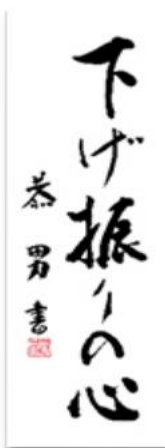 下げ振りの心
恭男書